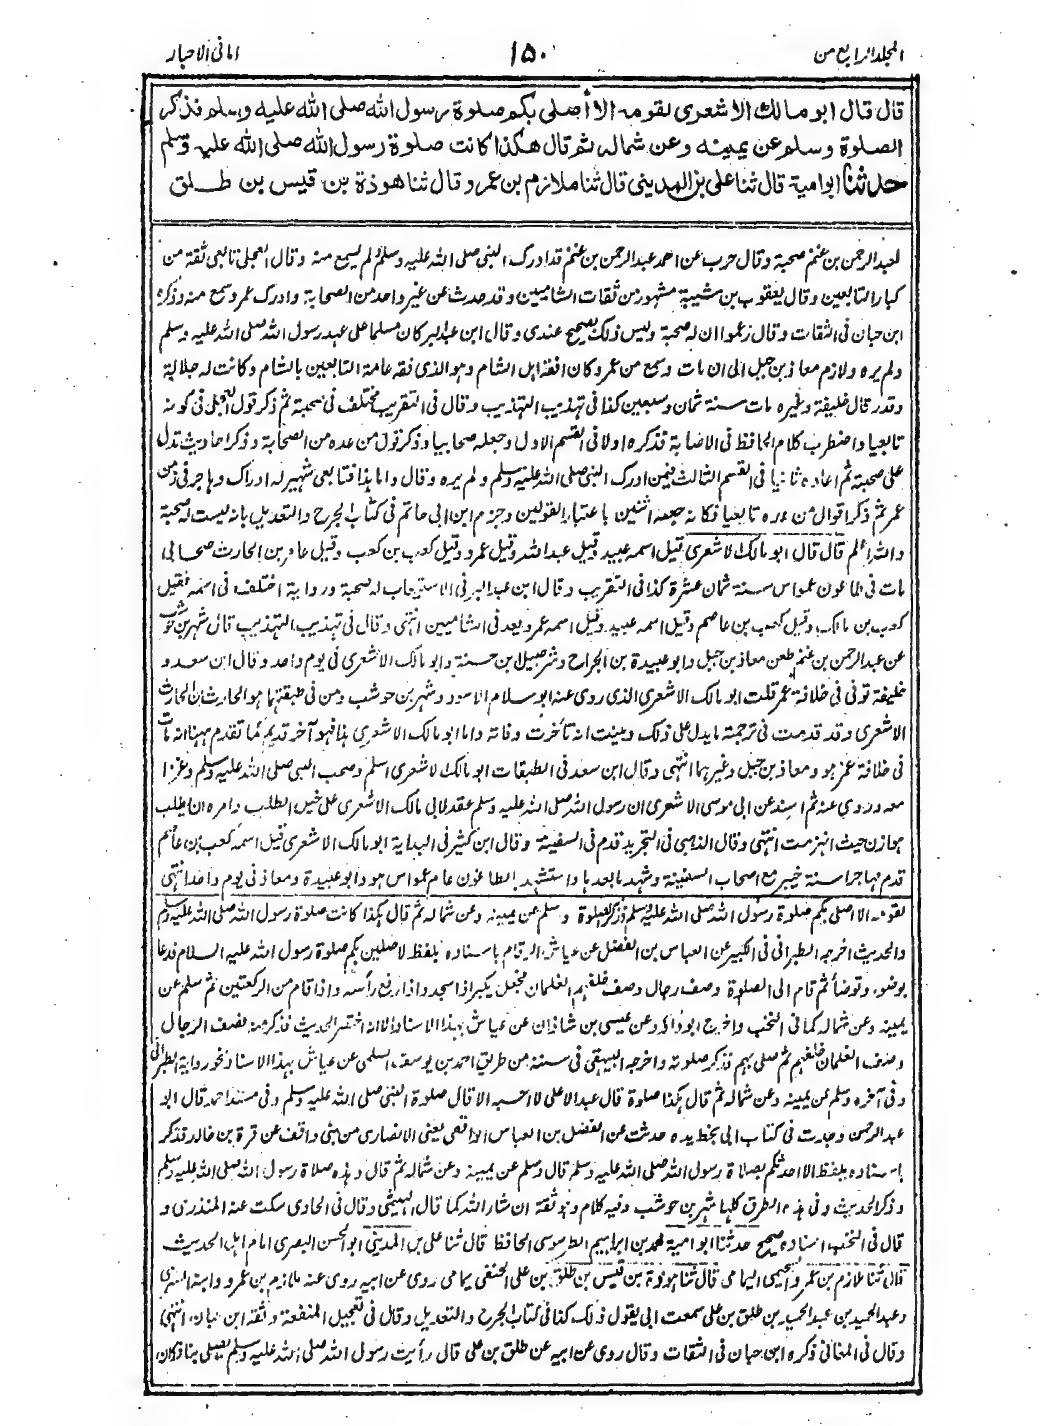 المجلد الرابع من
١٥٠
امانی الاحبار
قال قال ابو مالك الاشعری لقومه الا أصلی بكم صلوة رسول الله صلی الله علیه وسلم فذكر
الصلوة وسلم عن یمینه وعن شماله ثم قال هكذا كانت صلوة رسول الله صلی الله علیه وسلم
حدثنا ابو امیة قال ثنا علی بن المدینی قال ثنا ملازم بن عمرو قال ثنا هوذة بن قیس بن طلق
لعبد الرحمن بن غنم صحبة وقال حرب عن احمد عبد الرحمن بن غنم قد ادرك النبی صلی الله علیه وسلم ولم یسمع منه وقال العجلی تابعی ثقة من
كبار التابعین وقال یعقوب بن شیبة مشهور من ثقات الشامیین وقد حدث عن غیر واحد من الصحابة وادرك عمر وسمع منه وذكره
ابن حبان فی الثقات وقال زعموا ان له صحبة ولیس ذلك بصحیح عندی وقال ابن عبد البر كان مسلما علی عهد رسول الله صلی الله علیه وسلم
ولم یره ولازم معاذ بن جبل الی ان مات وسمع من عمر وكان افقه اهل الشام وهو الذی فقه عامة التابعین بالشام وكانت له جلالة
وقدر قال خلیفة وغیره مات سنة ثمان وسبعین كذا فی تهذیب التهذیب وقال فی التقریب مختلف فی صحبته ثم ذكر قول العجلی فی كونه
تابعیا واضطرب كلام الحافظ فی الاصابة فذكره اولا فی القسم الاول وجعله صحابیا وذكر قول من عده من الصحابة وذكر احادیث تدل
علی صحبته ثم اعاده ثانیا فی القسم الثالث فیمن ادرك النبی صلی الله علیه وسلم ولم یره وقال واما هذا فتابعی شهیر له ادراك وهاجر فی زمن
عمر ثم ذكر اقوال من عده تابعیا فكانه جعله اثنین باعتبار القولین وجزم ابن ابی حاتم فی كتاب الجرح والتعدیل بانه لیست له صحبة
والله اعلم قال قال ابو مالك الاشعری قیل اسمه عبید وقیل عبد الله وقیل عمرو وقیل كعب بن كعب وقیل عامر بن الحارث صحابی
مات فی طاعون عمواس سنة ثمان عشرة كذا فی التقریب وقال ابن عبد البر فی الاستیعاب له صحبة وروایة اختلف فی اسمه فقیل
كعب بن مالك وقیل كعب بن عاصم وقیل اسمه عبید وقیل اسمه عمرو یعد فی الشامیین انتهی وقال فی تهذیب التهذیب قال شهر بن حوشب
عن عبد الرحمن بن غنم طعن معاذ بن جبل وابو عبیدة بن الجراح وشرحبیل بن حسنة وابو مالك الاشعری فی یوم واحد وقال ابن سعد و
خلیفة توفی فی خلافة عمر قلت ابو مالك الاشعری الذی روی عنه ابو سلام الاسود وشهر بن حوشب ومن فی طبقتهما هو الحارث بن الحارث
الاشعری وقد قدمت فی ترجمته ما یدل علی ذلك وبینت انه تأخرت وفاته واما ابو مالك الاشعری هذا فهو آخر قدیم كما تقدم ههنا انه مات
فی خلافة عمر هو ومعاذ بن جبل وغیرهما انتهی وقال ابن سعد فی الطبقات ابو مالك الاشعری اسلم وصحب النبی صلی الله علیه وسلم وغزا
معه وروی عنه ثم اسند عن ابی موسی الاشعری ان رسول الله صلی الله علیه وسلم عقد لابی مالك الاشعری علی خیل الطلب وامره ان یطلب
هوازن حیث انهزمت انتهی وقال الذهبی فی التجرید قدم فی السفینة وقال ابن كثیر فی البدایة ابو مالك الاشعری قیل اسمه كعب بن عاصم
قدم مهاجرا سنة خیبر مع اصحاب السفینة وشهد ما بعدها واستشهد بالطاعون عام عمواس هو وابو عبیدة ومعاذ فی یوم واحد انتهی
لقومه الا اصلی بكم صلوة رسول الله صلی الله علیه وسلم فذكر الصلوة وسلم عن یمینه وعن شماله ثم قال هكذا كانت صلوة رسول الله صلی الله علیه وسلم
والحدیث اخرجه الطبرانی فی الكبیر عن العباس بن الفضل عن عیاش الرقام باسناده بلفظ لاصلین بكم صلوة رسول الله علیه السلام فدعا
بوضوء وتوضأ ثم قام الی الصلوة وصف رجال وصف خلفهم الغلمان فجعل یكبر اذا سجد واذا رفع رأسه واذا قام من الركعتین ثم سلم عن
یمینه وعن شماله كما فی النخب واخرج ابو داؤد عن عیسی بن شاذان عن عیاش بهذا الاسناد الا انه اختصر الحدیث فذكر منه فصف الرجال
وصف الغلمان خلفهم ثم صلی بهم فذكر صلوته واخرجه البیهقی فی سننه من طریق احمد بن یوسف السلمی عن عیاش بهذا الاسناد نحو روایة الطبرانی
وفی آخره وسلم عن یمینه وعن شماله ثم قال هكذا صلوة قال عبد الاعلی لا احسبه الا قال صلوة النبی صلی الله علیه وسلم وفی مسند احمد قال ابو
عبد الرحمن وجدت فی كتاب ابی بخط یده حدثت عن الفضل بن العباس الواقفی یعنی الانصاری من بنی واقف عن قرة بن خالد فذكر
باسناده بلفظ الا احدثكم بصلاة رسول الله صلی الله علیه وسلم قال وسلم عن یمینه وعن شماله ثم قال وهذه صلاة رسول الله صلی الله علیه وسلم
وذكر الحدیث وفی هذه الطرق كلها شهر بن حوشب وفیه كلام وهو ثقة ان شاء الله كما قال الهیثمی وقال فی الحاوی سكت عنه المنذری و
قال فی النخب اسناده صحیح حدثنا ابو امیة محمد بن ابراهیم الطرسوسی الحافظ قال ثنا علی بن المدینی ابو الحسن البصری امام اهل الحدیث
قال ثنا ملازم بن عمرو السحیمی الیمامی قال ثنا هوذة بن قیس بن طلق بن علی الحنفی یمامی روی عن ابیه روی عنه ملازم بن عمرو وابنه السری
وعبد الحمید بن عبد الحمید بن طلق بن علی سمعت ابی یقول ذلك كذا فی كتاب الجرح والتعدیل وقال فی تعجیل المنفعة وثقه ابن حبان انتهی
وقال فی المغانی ذكره ابن حبان فی الثقات وقال روی عن ابیه عن طلق بن علی قال رأیت رسول الله صلی الله علیه وسلم یصلی بنا فكان